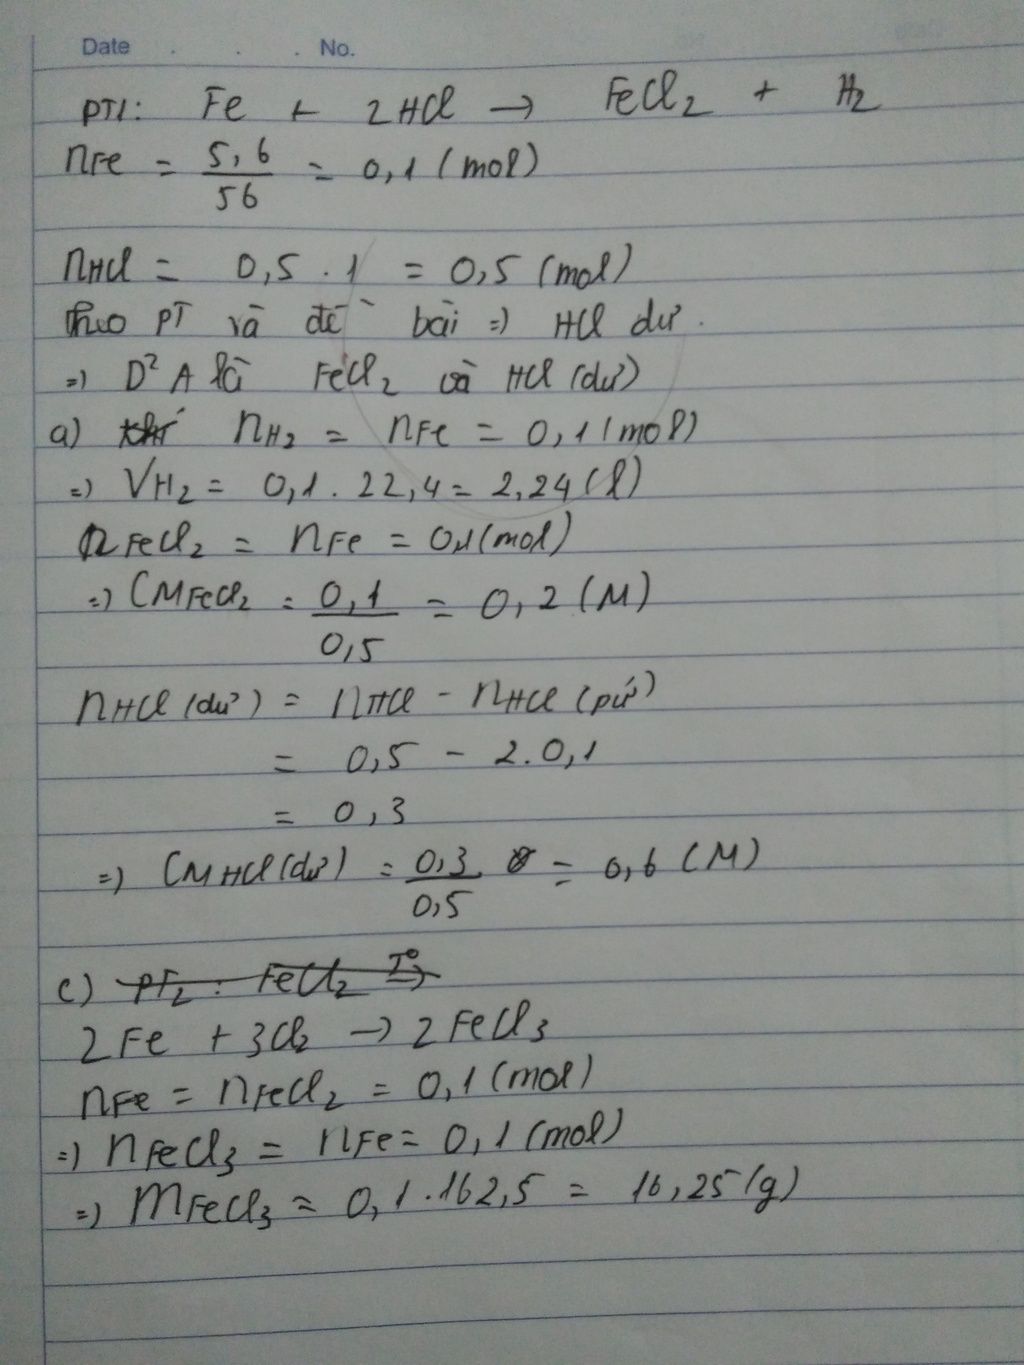 Date . . . No.
PT1: Fe + 2HCl → FeCl2 + H2
nFe = 5,6/56 = 0,1 (mol)
nHCl = 0,5 . 1 = 0,5 (mol)
Theo PT và đề bài => HCl dư.
=> D2 A là FeCl2 và HCl (dư)
a) khí nH2 = nFe = 0,1 (mol)
=> VH2 = 0,1 . 22,4 = 2,24 (l)
nFeCl2 = nFe = 0,1 (mol)
=> CM FeCl2 = 0,1/0,5 = 0,2 (M)
nHCl (dư) = nHCl - nHCl (pứ)
= 0,5 - 2.0,1
= 0,3
=> CM HCl (dư) = 0,3/0,5 = 0,6 (M)
c) PT2 : FeCl2 T°→
2Fe + 3Cl2 → 2FeCl3
nFe = nFeCl2 = 0,1 (mol)
=> nFeCl3 = nFe = 0,1 (mol)
=> mFeCl3 = 0,1 . 162,5 = 16,25 (g)